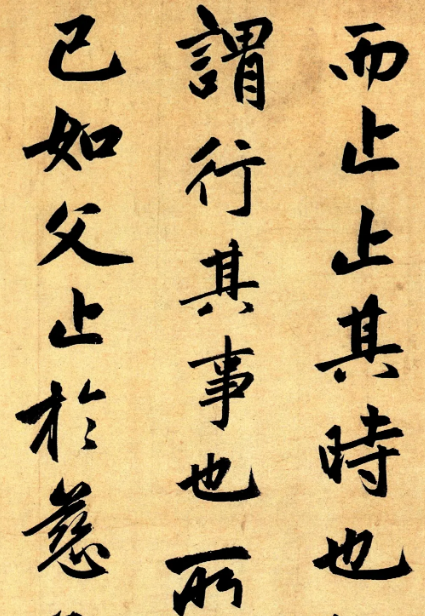 而止止其時也
謂行其事也所
已如父止於慈